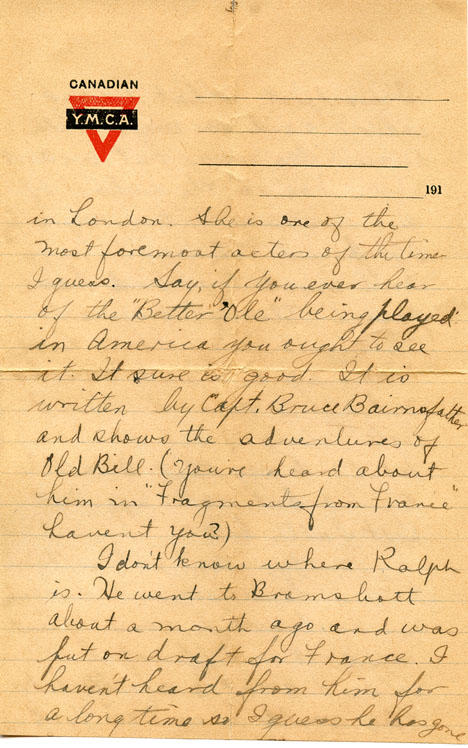 CANADIAN
Y.M.C.A.
191
in London. She is one of the
most foremost acters of the time
I guess. Say, if you ever hear
of the "Better 'Ole" being played
in America you ought to see
it. It sure is good. It is
written by Capt. Bruce Bairnsfather
and shows the adventures of
Old Bill. (You've heard about
him in "Fragments from France"
havent you?)
I don't know where Ralph
is. He went to Bramshott
about a month ago and was
put on draft for France. I
haven't heard from him for
a long time so I guess he has gone